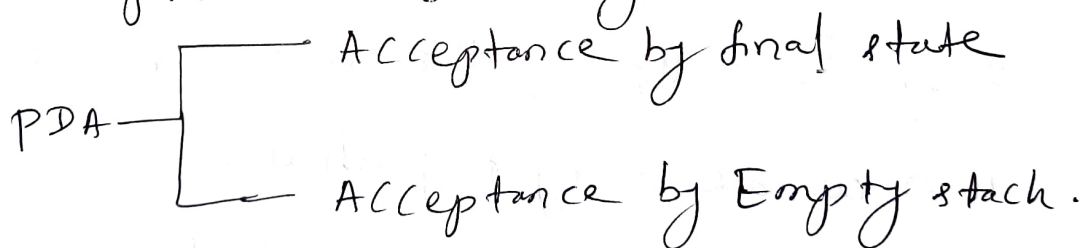 Acceptance by final state
PDA
Acceptance by Empty stack.